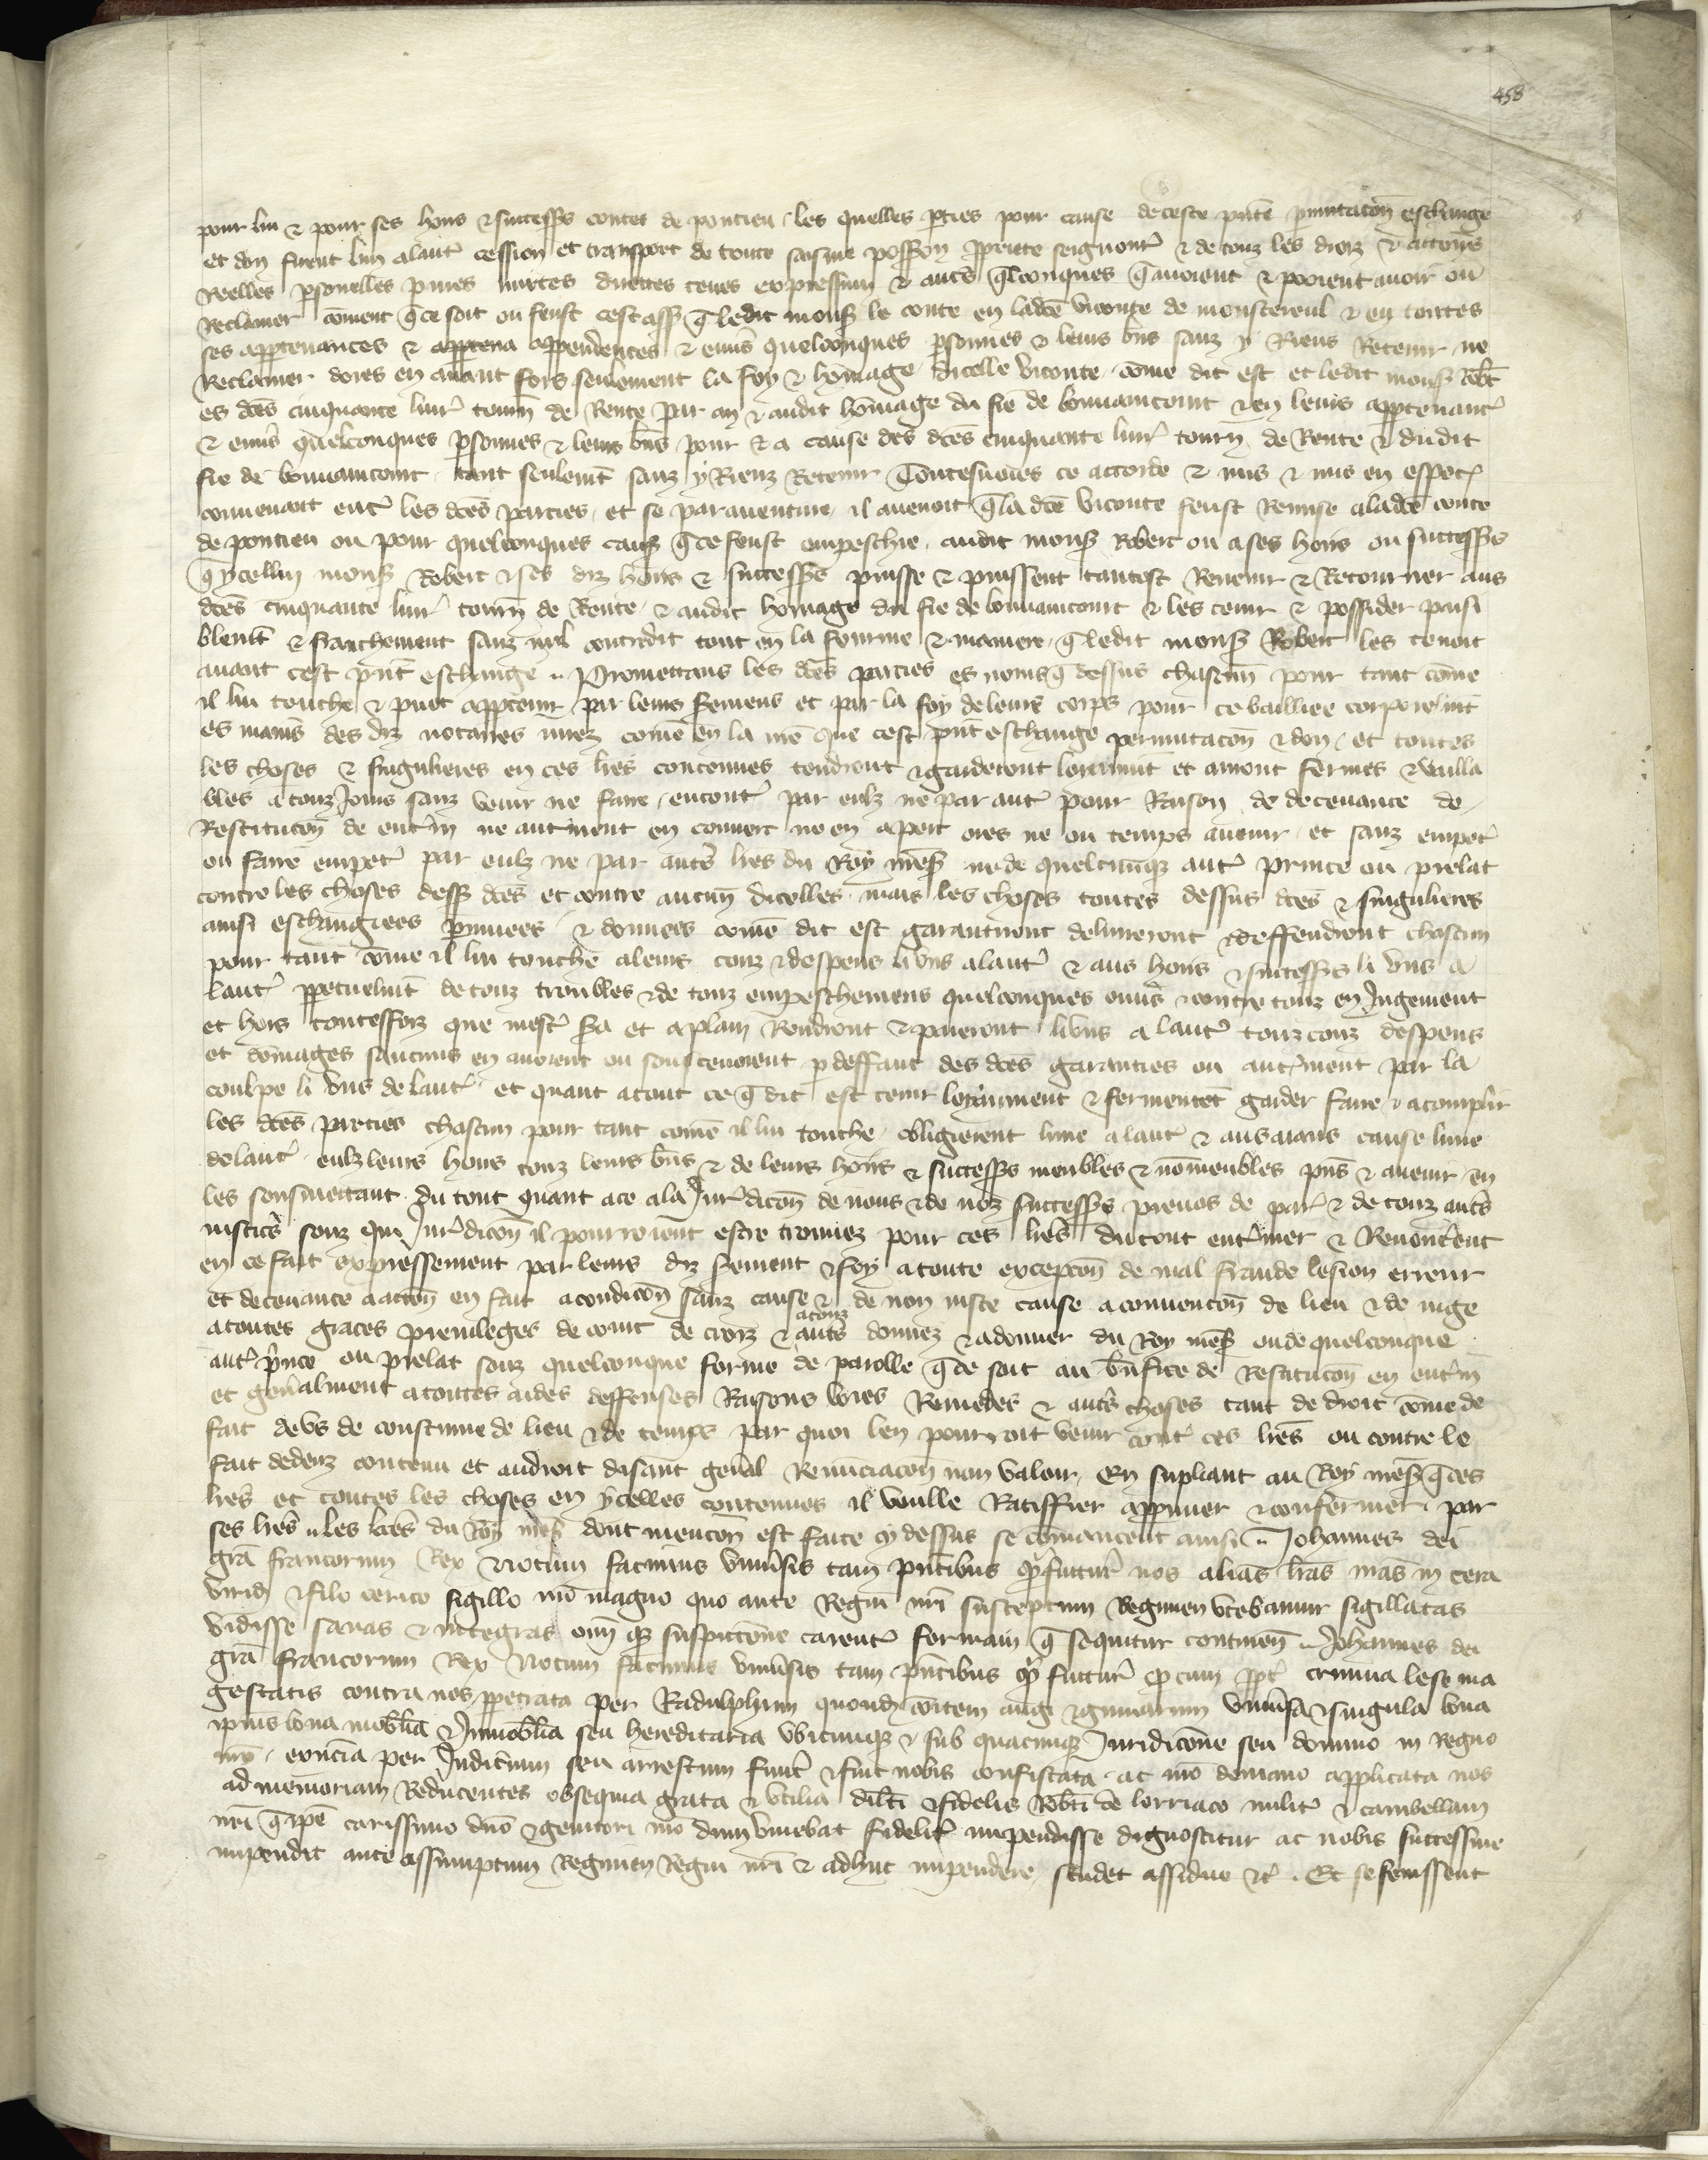 458
pour lui & pour ses hoirs & successrs contes de pontieu les quelles pties pour cause de ceste pnte pmutacon eschange
et don firent lun a laut cession et transport de toute saisine possession pprieté seignourie & de touz les droiz & actions
Reelles psonelles pures mixtes directes teues expressium & autres qlconques q avoient & pooient avoir ou
Reclamer coment q ce soit ou feust cest ass q ledit mons le conte en ladce viconte de monstereul & en toutes
ses apptenances & apptena appendences & envs quelconques psonnes & leurs bns sanz y Riens Retenir ne
Reclamer dores en avant fors seulement la foy & homage dicelle viconte come dit est et ledit mons Robt
es dces cinquante livr tourn de Rente par an & audit homage du fie de bouvaincourt & en leurs apptenant
& envs quelconques psonnes & leurs bns pour & a cause des dces cinquante livr tourn de Rente & dudit
fie de bouvaincourt tant seulemt sanz y Rienz Retenir Toutesvoies ce accorde & mis & mis en expres
convenant entr les dces parties et se paraventure il avenoit q la dce viconte feust Remise a ladce conte
de pontieu ou pour quelconques caus q ce feust empeschie audit mons Robert ou a ses hoirs ou successrs
q ycellui mons Robert & ses diz hoirs & successrs puisse & puissent tantost Revenir & Retourner aus
dces cinquante livr tourn de Rente & audit homage du fie de bouvaincourt & les tenir & possider paisi
blemt & franchement sanz nul contredit tout en la fourme & maniere q ledit mons Robert les tenoit
avant cest pnt eschange Promettans les dces parties es noms q dessus chascun pour tant come
il lui touche & puet apptenir par leurs seremens et par la foy de leurs corps pour ce bailliee corporelmt
es mains des diz notaires nuez come en la me que cest pnt eschange permutacon & don et toutes
les choses & singulieres en ces lres contenues tendront & garderont loyaumt et auront fermes & vailla
bles a touz Jours sanz venir ne faire encontr par eulz ne par autr pour Raison de decevance de
Restitucon de entrin ne autrement en convert ne en apert ores ne ou temps avenir et sanz empetr
ou faire empetr par eulz ne par autrs lres du Roy mess ne de quelcunque autr prince ou prelat
contre les choses dess dces et contre aucun dicelles mais les choses toutes dessus dces & singulieres
ainsi eschangiees pmuees & donnees come dit est garantiront deliverront & deffendront chascun
pour tant come il lui touche a leurs couz & despens li uns a laut & aus hoirs & successrs li uns a
laut ppetuelmt de touz troubles & de touz empeschemens quelconques envs & contre touz en Jugement
et hors toutesfoiz que mestr sera et a plain Rendront & paieront li uns a laut touz couz despens
et domages saucuns en avoient ou soustenoient p deffaut des dces garanties ou autrement par la
coulpe li uns de laut et quant a tout ce q dit est tenir loyaument & fermement garder faire & acomplir
les dces parties chascun pour tant come il lui touche obligierent lune a laut & aus aians cause lune
de laut eulz leurs hoirs touz leurs bns & de leurs hoirs & successrs meubles & nomeubles pns & avenir en
les sousmettant du tout quant a ce a la Jurdicon de nous & de noz successrs prevos de par & de touz autrs
justices souz qui Jurdicon il pourroient estre trouvez pour ces lres du tout entriner & Renoncerent
en ce fait expressement par leurs diz serement & foy a toute excepcon de mal fraude lesion erreur
et decevance a accon en fait a condicon sanz cause & de non juste cause a convencon de lieu & de juge
a toutes graces privileges de court de croiz & a touz autrs donnez & a donner du Roy mess ou de quelconque
autr prince ou prelat souz quelconque forme de parolle q ce soit au bnfice de Restitucon en entrin
et genalment a toutes aides deffenses Raisons voies Remedes & autrs choses tant de droit come de
fait de us de coustume de lieu & de temps par quoi len pourroit venir contr ces lres ou contre le
fait dedenz contenu et au droit disant genal Renunciacon non valoir En supliant au Roy mess q ces
lres et toutes les choses en ycelles contenues il vuille Ratiffier appruver & confermer par
ses lres Les lres du Roy mess dont mencon est faite cy dessus se comancent ainsi Johannes dei
gra francorum Rex Notum facimus univsis tam pntibus q futur nos alias lras nras in cera
viridi & filo cerico sigillo nro magno quo ante Regni nri susceptum Regimen utebamur sigillatas
vidisse sanas & integras omi q suspicione carentr formam q sequitur continen Johannes dei
gra francorum Rex Notum facimus univsis tam pntibus q futur q cum pptr crimina lese ma
gestatis contra nos ppetrata per Radulphum quond comitem augi & guinarum univsa & singula bona
ipsius bona mobilia & Inmobilia seu hereditaria ubicunq & sub quacunq Juridicone seu dominio in Regno
nro exncia per Judicium seu arrestum fuert & sint nobis confiscata ac nro demanio applicata nos
ad memoriam Reducentes obsequia grata & utilia dilti & fidelis Robti de lorriaco milit & cambellani
nri q ipe carissimo dno & genitori nro dum vivebat fidelitr impendisse dignoscitur ac nobis successive
impendit ante assumptum Regimen Regni nri & adhuc impendere studet assidue &c Et se fenissent